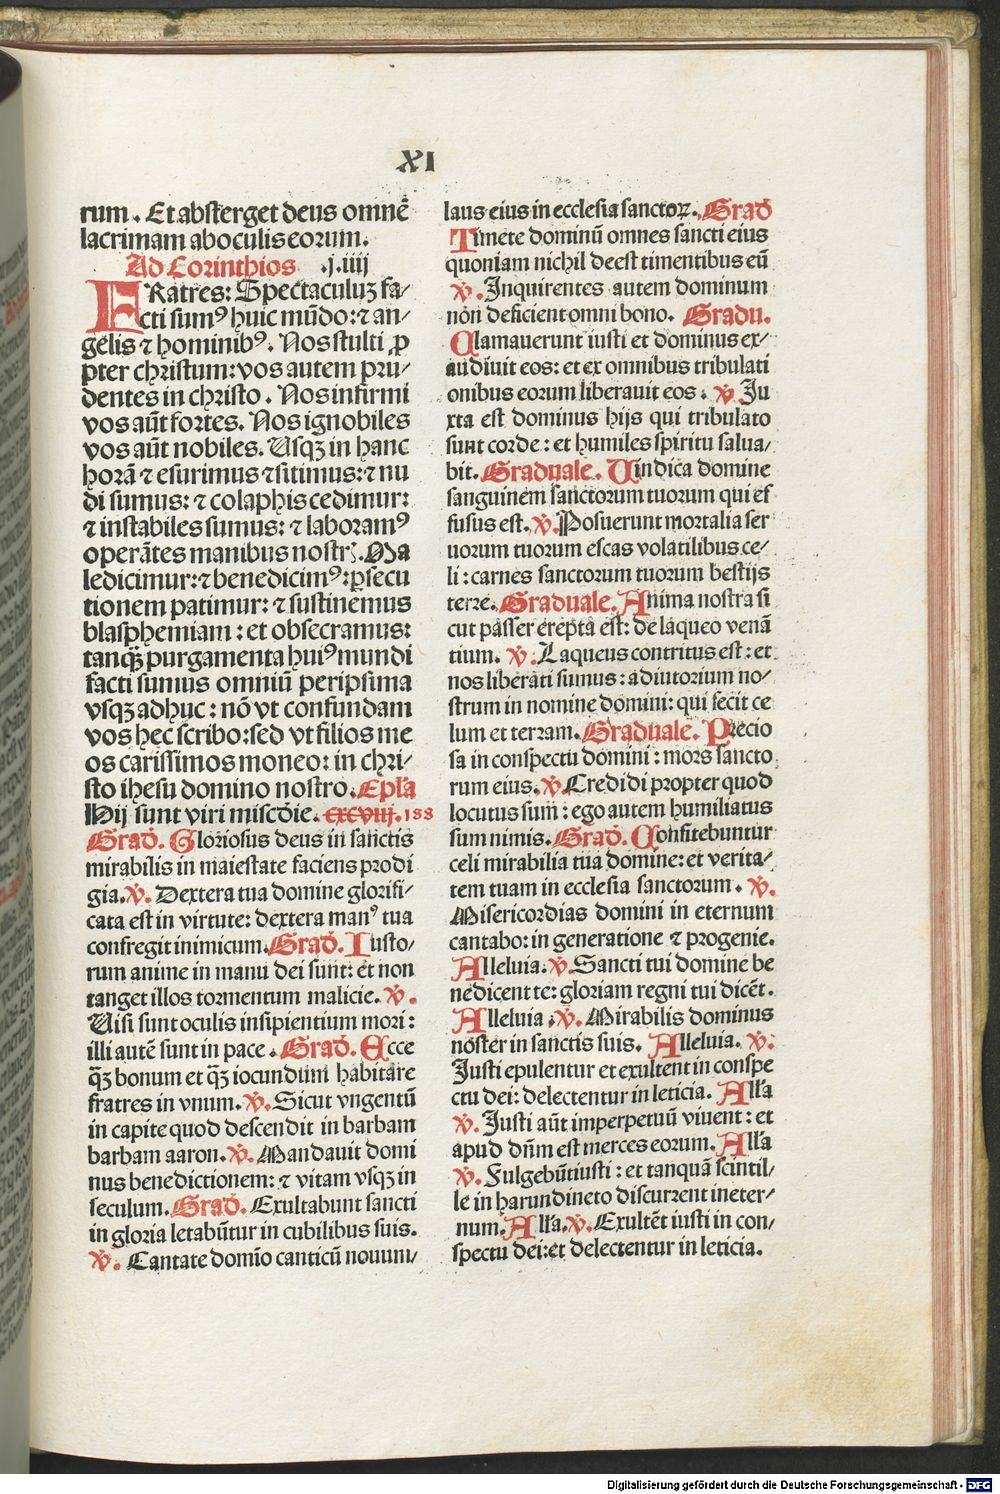 XI
rum. Et absterget deus omnē
lacrimam ab oculis eorum.
Ad Corinthios .j.iiij
FRatres: Spectaculuʒ fa/
cti sumꝰ huic mūdo: ⁊ an/
gelis ⁊ hominibꝰ. Nos stulti ꝓ
pter christum: vos autem pru/
dentes in christo. Nos infirmi
vos aūt fortes. Nos ignobiles
vos aūt nobiles. Usqʒ in hanc
horā ⁊ esurimus ⁊ sitimus: ⁊ nu
di sumus: ⁊ colaphis cedimur:
⁊ instabiles sumus: ⁊ laboramꝰ
operātes manibus nostrꝭ. Ma
ledicimur: ⁊ benedicimꝰ: ꝑsecu
tionem patimur: ⁊ sustinemus
blasphemiam: et obsecramus:
tanqʒ̄ purgamenta huiꝰ mundi
facti sumus omniū peripsima
vsqʒ adhuc: nō vt confundam
vos hec scribo: sed vt filios me
os carissimos moneo: in chri/
sto ihesu domino nostro. Ep̄la
Hij sunt viri misc̄die. cxcviij. 188
Grad̄. Gloriosus deus in sanctis
mirabilis in maiestate faciens prodi
gia. ℣. Dextera tua domine glorifi/
cata est in virtute: dextera manꝰ tua
confregit inimicum. Grad̄. Iusto/
rum anime in manu dei sunt: et non
tanget illos tormentum malicie. ℣.
Uisi sunt oculis insipientium mori:
illi autē sunt in pace. Grad̄. Ecce
qʒ̄ bonum et qʒ̄ iocundum habitare
fratres in vnum. ℣. Sicut vngentū
in capite quod descendit in barbam
barbam aaron. ℣. Mandauit domi
nus benedictionem: ⁊ vitam vsqʒ in
seculum. Grad̄. Exultabunt sancti
in gloria letabūtur in cubilibus suis.
℣. Cantate domīo canticū nouum/
laus eius in ecclesia sanctoꝝ. Grad̄
Timete dominū omnes sancti eius
quoniam nichil deest timentibus eū
℣. Inquirentes autem dominum
non deficient omni bono. Gradu.
Clamauerunt iusti et dominus ex/
audiuit eos: et ex omnibus tribulati
onibus eorum liberauit eos. ℣. Iu
xta est dominus hijs qui tribulato
sunt corde: et humiles spiritu salua/
bit. Graduale. Uindica domine
sanguinem sanctorum tuorum qui ef
fusus est. ℣. Posuerunt mortalia ser
uorum tuorum escas volatilibus ce/
li: carnes sanctorum tuorum bestijs
terre. Graduale. Anima nostra si
cut passer erepta est: de laqueo venā
tium. ℣. Laqueus contritus est: et
nos liberati sumus: adiutorium no/
strum in nomine domini: qui fecit ce
lum et terram. Graduale. Precio
sa in conspectu domini: mors sancto
rum eius. ℣. Credidi propter quod
locutus sum: ego autem humiliatus
sum nimis. Grad̄. Confitebuntur
celi mirabilia tua domine: et verita/
tem tuam in ecclesia sanctorum. ℣.
Misericordias domini in eternum
cantabo: in generatione ⁊ progenie.
Alleluia. ℣. Sancti tui domine be
nedicent te: gloriam regni tui dicēt.
Alleluia. ℣. Mirabilis dominus
noster in sanctis suis. Alleluia. ℣.
Iusti epulentur et exultent in conspe
ctu dei: delectentur in leticia. All̄a
℣. Iusti aūt imperpetuū viuent: et
apud dn̄m est merces eorum. All̄a
℣. Fulgebūt iusti: et tanquā scintil/
le in harundineto discurrent in eter/
num. All̄a. ℣. Exultēt iusti in con/
spectu dei: et delectentur in leticia.
Digitalisierung gefördert durch die Deutsche Forschungsgemeinschaft - DFG